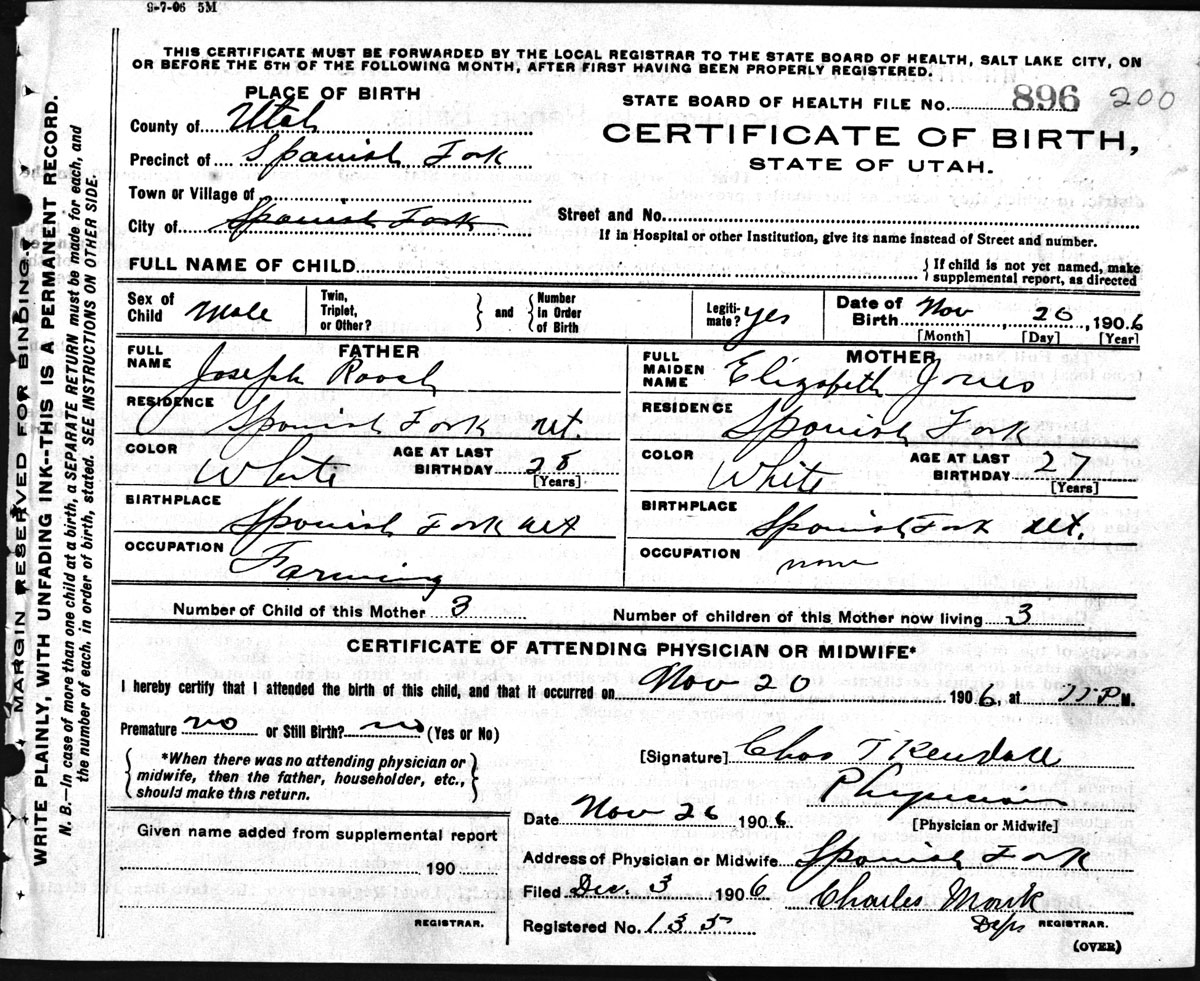 9-7-06 5M
THIS CERTIFICATE MUST BE FORWARDED BY THE LOCAL REGISTRAR TO THE STATE BOARD OF HEALTH, SALT LAKE CITY, ON
OR BEFORE THE 5TH OF THE FOLLOWING MONTH, AFTER FIRST HAVING BEEN PROPERLY REGISTERED.
MARGIN RESERVED FOR BINDING.
WRITE PLAINLY, WITH UNFADING INK--THIS IS A PERMANENT RECORD.
N. B.—In case of more than one child at a birth, a SEPARATE RETURN must be made for each, and
the number of each, in order of birth, stated. SEE INSTRUCTIONS ON OTHER SIDE.
PLACE OF BIRTH
County of Utah
Precinct of Spanish Fork
Town or Village of
City of Spanish Fork
STATE BOARD OF HEALTH FILE No. 896 200
CERTIFICATE OF BIRTH,
STATE OF UTAH.
Street and No.
If in Hospital or other Institution, give its name instead of Street and number.
FULL NAME OF CHILD
If child is not yet named, make
supplemental report, as directed
Sex of Child Male
Twin, Triplet, or Other?
and
Number in Order of Birth
Legiti-mate? yes
Date of Birth Nov, 20, 1906
[Month] [Day] [Year]
FATHER
FULL NAME Joseph Roach
RESIDENCE Spanish Fork Ut.
COLOR White
AGE AT LAST BIRTHDAY 28
[Years]
BIRTHPLACE Spanish Fork Ut
OCCUPATION Farming
MOTHER
FULL MAIDEN NAME Elizabeth Jones
RESIDENCE Spanish Fork
COLOR White
AGE AT LAST BIRTHDAY 27
[Years]
BIRTHPLACE Spanish Fork Ut.
OCCUPATION none
Number of Child of this Mother 3
Number of children of this Mother now living 3
CERTIFICATE OF ATTENDING PHYSICIAN OR MIDWIFE*
I hereby certify that I attended the birth of this child, and that it occurred on Nov 20 1906, at P M.
Premature no or Still Birth? no (Yes or No)
*When there was no attending physician or
midwife, then the father, householder, etc.,
should make this return.
[Signature] Chas T Kendall
Physician
[Physician or Midwife]
Date Nov 26 1906
Address of Physician or Midwife Spanish Fork
Filed Dec. 3 1906 Charles Monk
Registered No. 135 Dep REGISTRAR.
(OVER)
Given name added from supplemental report
190
REGISTRAR.